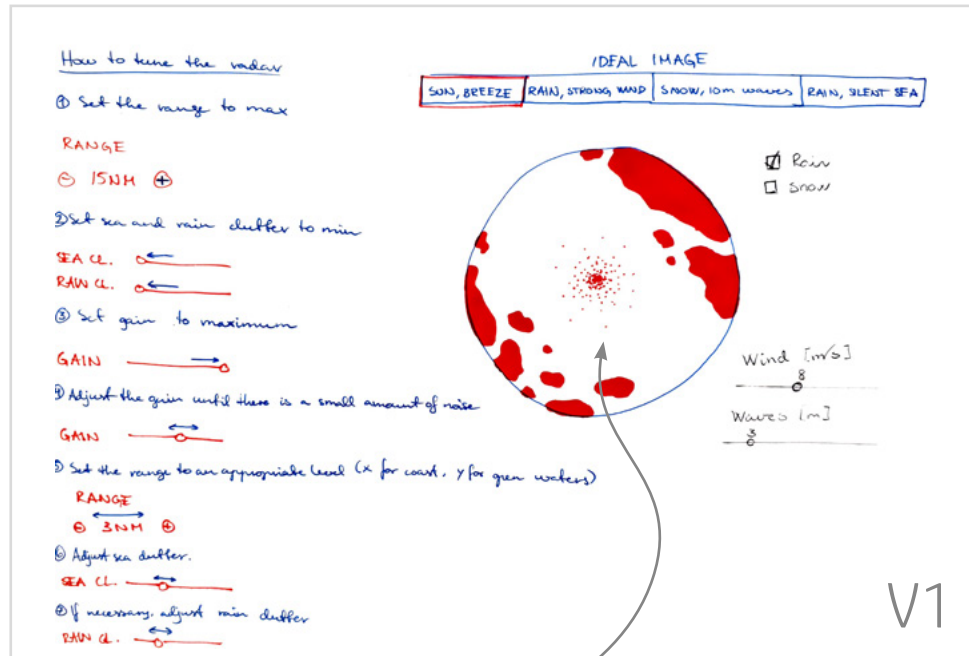 How to tune the radar
① Set the range to max
RANGE
⊖ 15NM ⊕
② Set sea and rain clutter to min
SEA CL.
RAIN CL.
③ Set gain to maximum
GAIN
④ Adjust the gain until there is a small amount of noise
GAIN
⑤ Set the range to an appropriate level (x for coast, y for open waters)
RANGE
⊖ 3NM ⊕
⑥ Adjust sea clutter.
SEA CL.
⑦ If necessary, adjust rain clutter
RAIN CL.
IDEAL IMAGE
SUN, BREEZE RAIN, STRONG WIND SNOW, 10m waves RAIN, SILENT SEA
Rain
Snow
Wind [m/s]
8
Waves [m]
3
V1